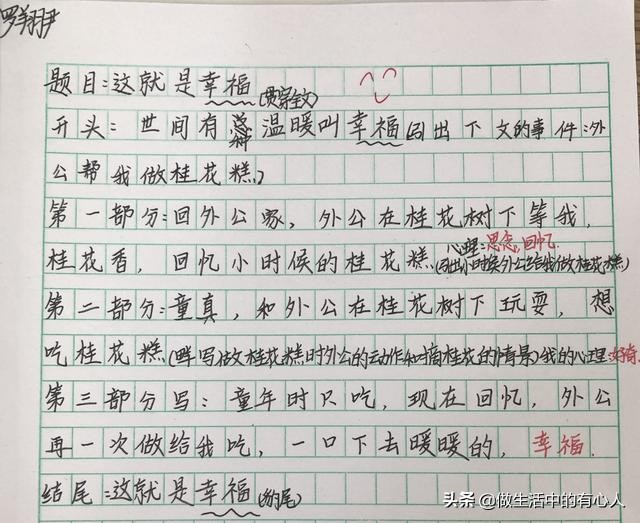 罗翔尹
题目:这就是幸福(贯穿全文)
开头:世间有种温暖叫幸福(引出下文的事件:外
公帮我做桂花糕)
第一部分:回外公家,外公在桂花树下等我,
心理:思念,回忆
桂花香,回忆小时候的桂花糕(引出小时候外公给我做桂花糕)
第二部分:童真,和外公在桂花树下玩耍,想
吃桂花糕(详写做桂花糕时外公的动作和摘桂花的情景)我的心理:好奇
第三部分写:童年时只吃,现在回忆,外公
再一次做给我吃,一口下去暖暖的,幸福.
结尾:这就是幸福(豹尾)
头条 @做生活中的有心人